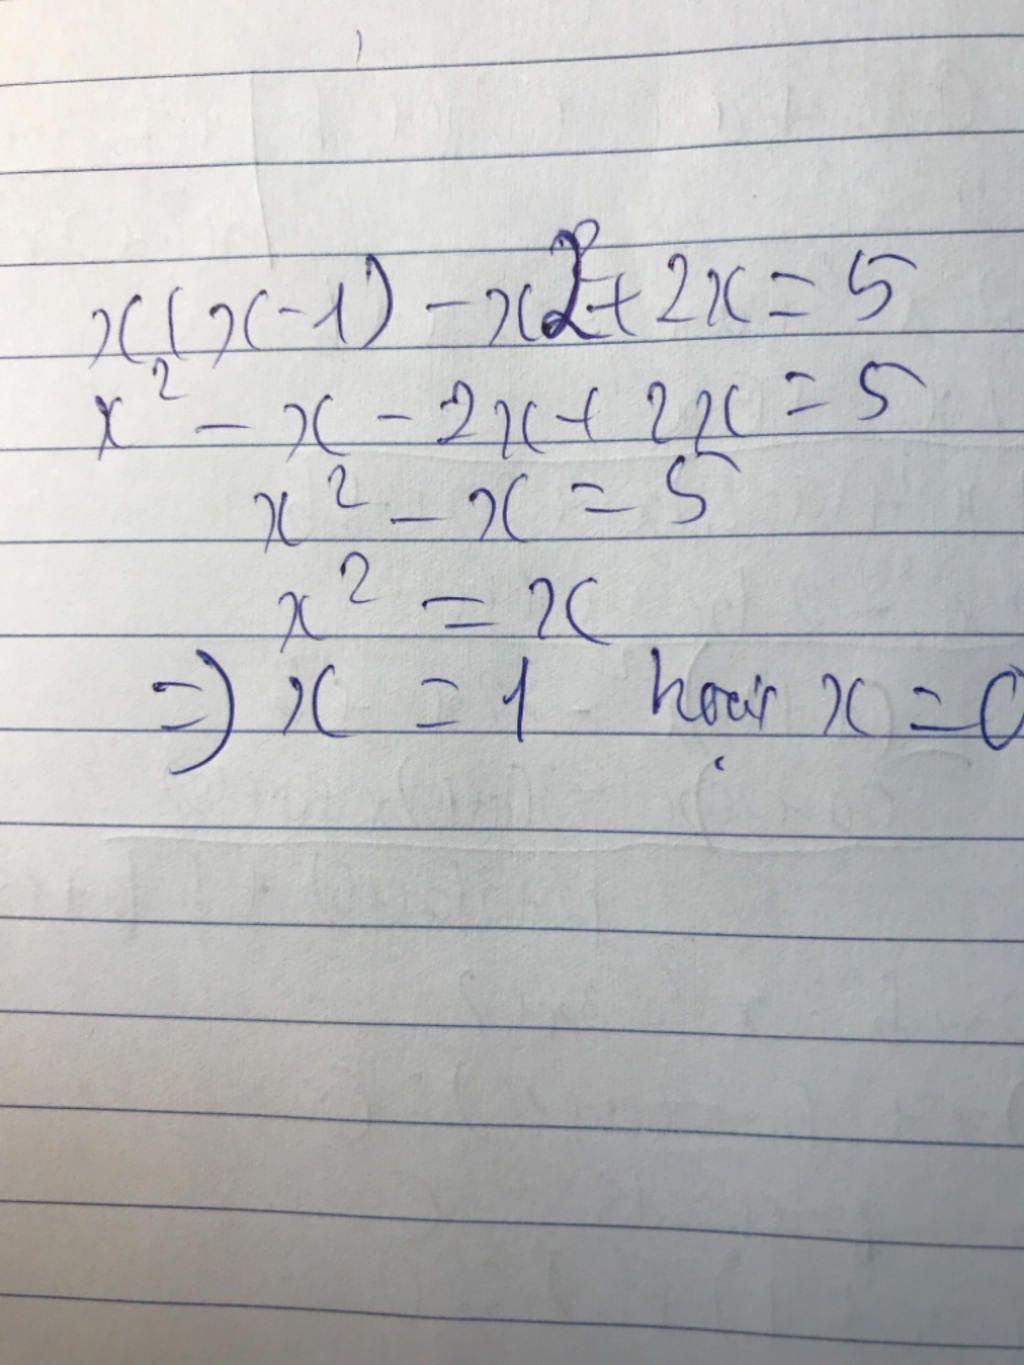 x(x-1) - x2 + 2x = 5
x² - x - 2x + 2x = 5
x² - x = 5
x² = x
=) x = 1 hoặc x = 0